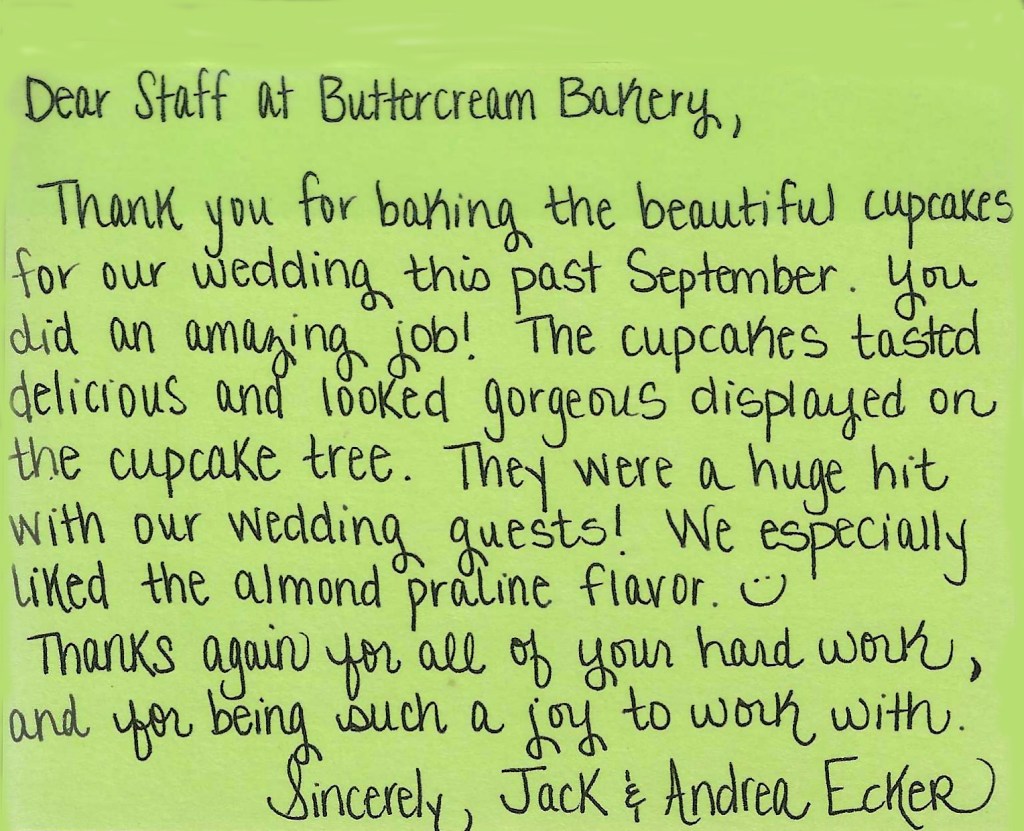 Dear Staff at Buttercream Bakery,
Thank you for baking the beautiful cupcakes
for our wedding this past September. You
did an amazing job! The cupcakes tasted
delicious and looked gorgeous displayed on
the cupcake tree. They were a huge hit
with our wedding guests! We especially
liked the almond praline flavor. :)
Thanks again for all of your hard work,
and for being such a joy to work with.
Sincerely, Jack & Andrea Ecker